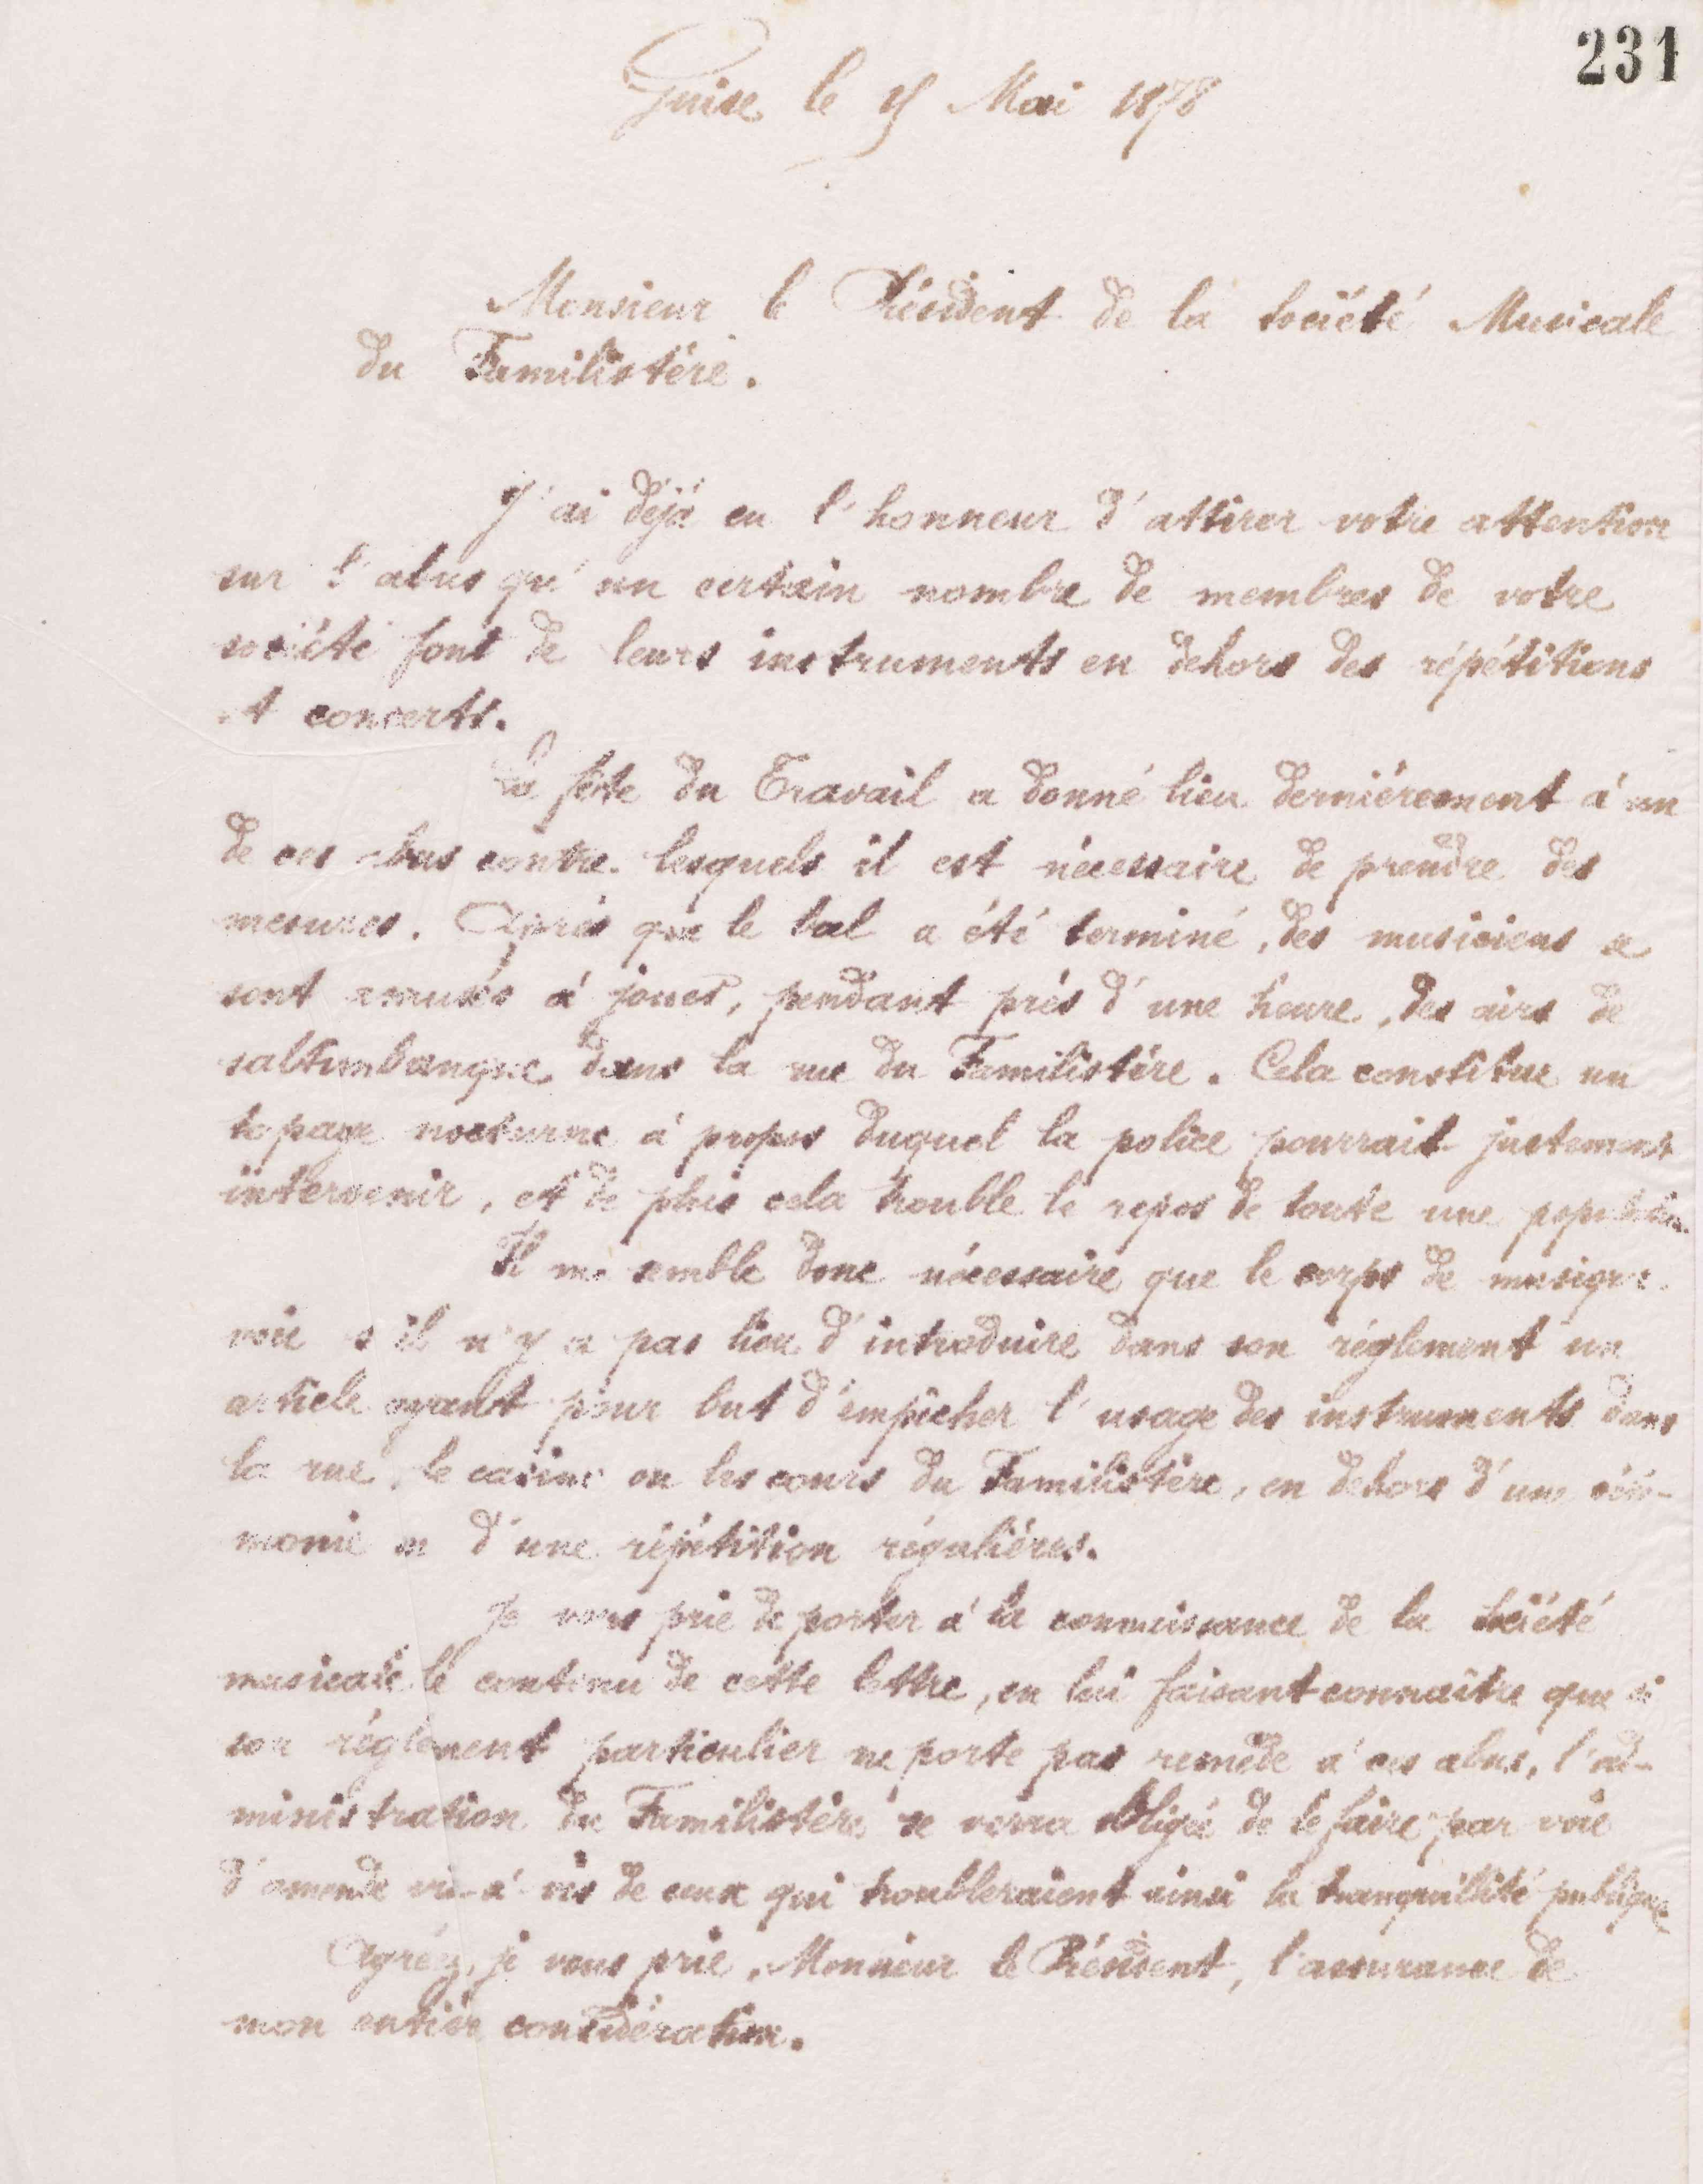 231
Guise le Mai 1878
Monsieur le Président de la Société Musicale
du Familistère.
J'ai déjà eu l'honneur d'attirer votre attention
sur l'abus qu'un certain nombre de membres de votre
société font de leurs instruments en dehors des répétitions
et concerts.
La fête du Travail a donné lieu dernièrement à un
de ces abus contre lesquels il est nécessaire de prendre des
mesures. Après que le bal a été terminé, des musiciens se
sont amusés à jouer, pendant près d'une heure, des airs de
saltimbanque dans la rue du Familistère. Cela constitue un
tapage nocturne à propos duquel la police pourrait justement
intervenir, et de plus cela trouble le repos de toute une population.
Il me semble donc nécessaire que le corps de musique
voie s'il n'y a pas lieu d'introduire dans son règlement un
article ayant pour but d'empêcher l'usage des instruments dans
la rue, le casino ou les cours du Familistère, en dehors d'une céré-
monie ou d'une répétition régulières.
Je vous prie de porter à la connaissance de la Société
musicale le contenu de cette lettre, en lui faisant connaître que si
son règlement particulier ne porte pas remède à ces abus, l'ad-
ministration du Familistère se verra obligée de le faire par voie
d'amende vis-à-vis de ceux qui troubleraient ainsi la tranquillité publique
Agréez, je vous prie, Monsieur le Président, l'assurance de
mon entière considération.